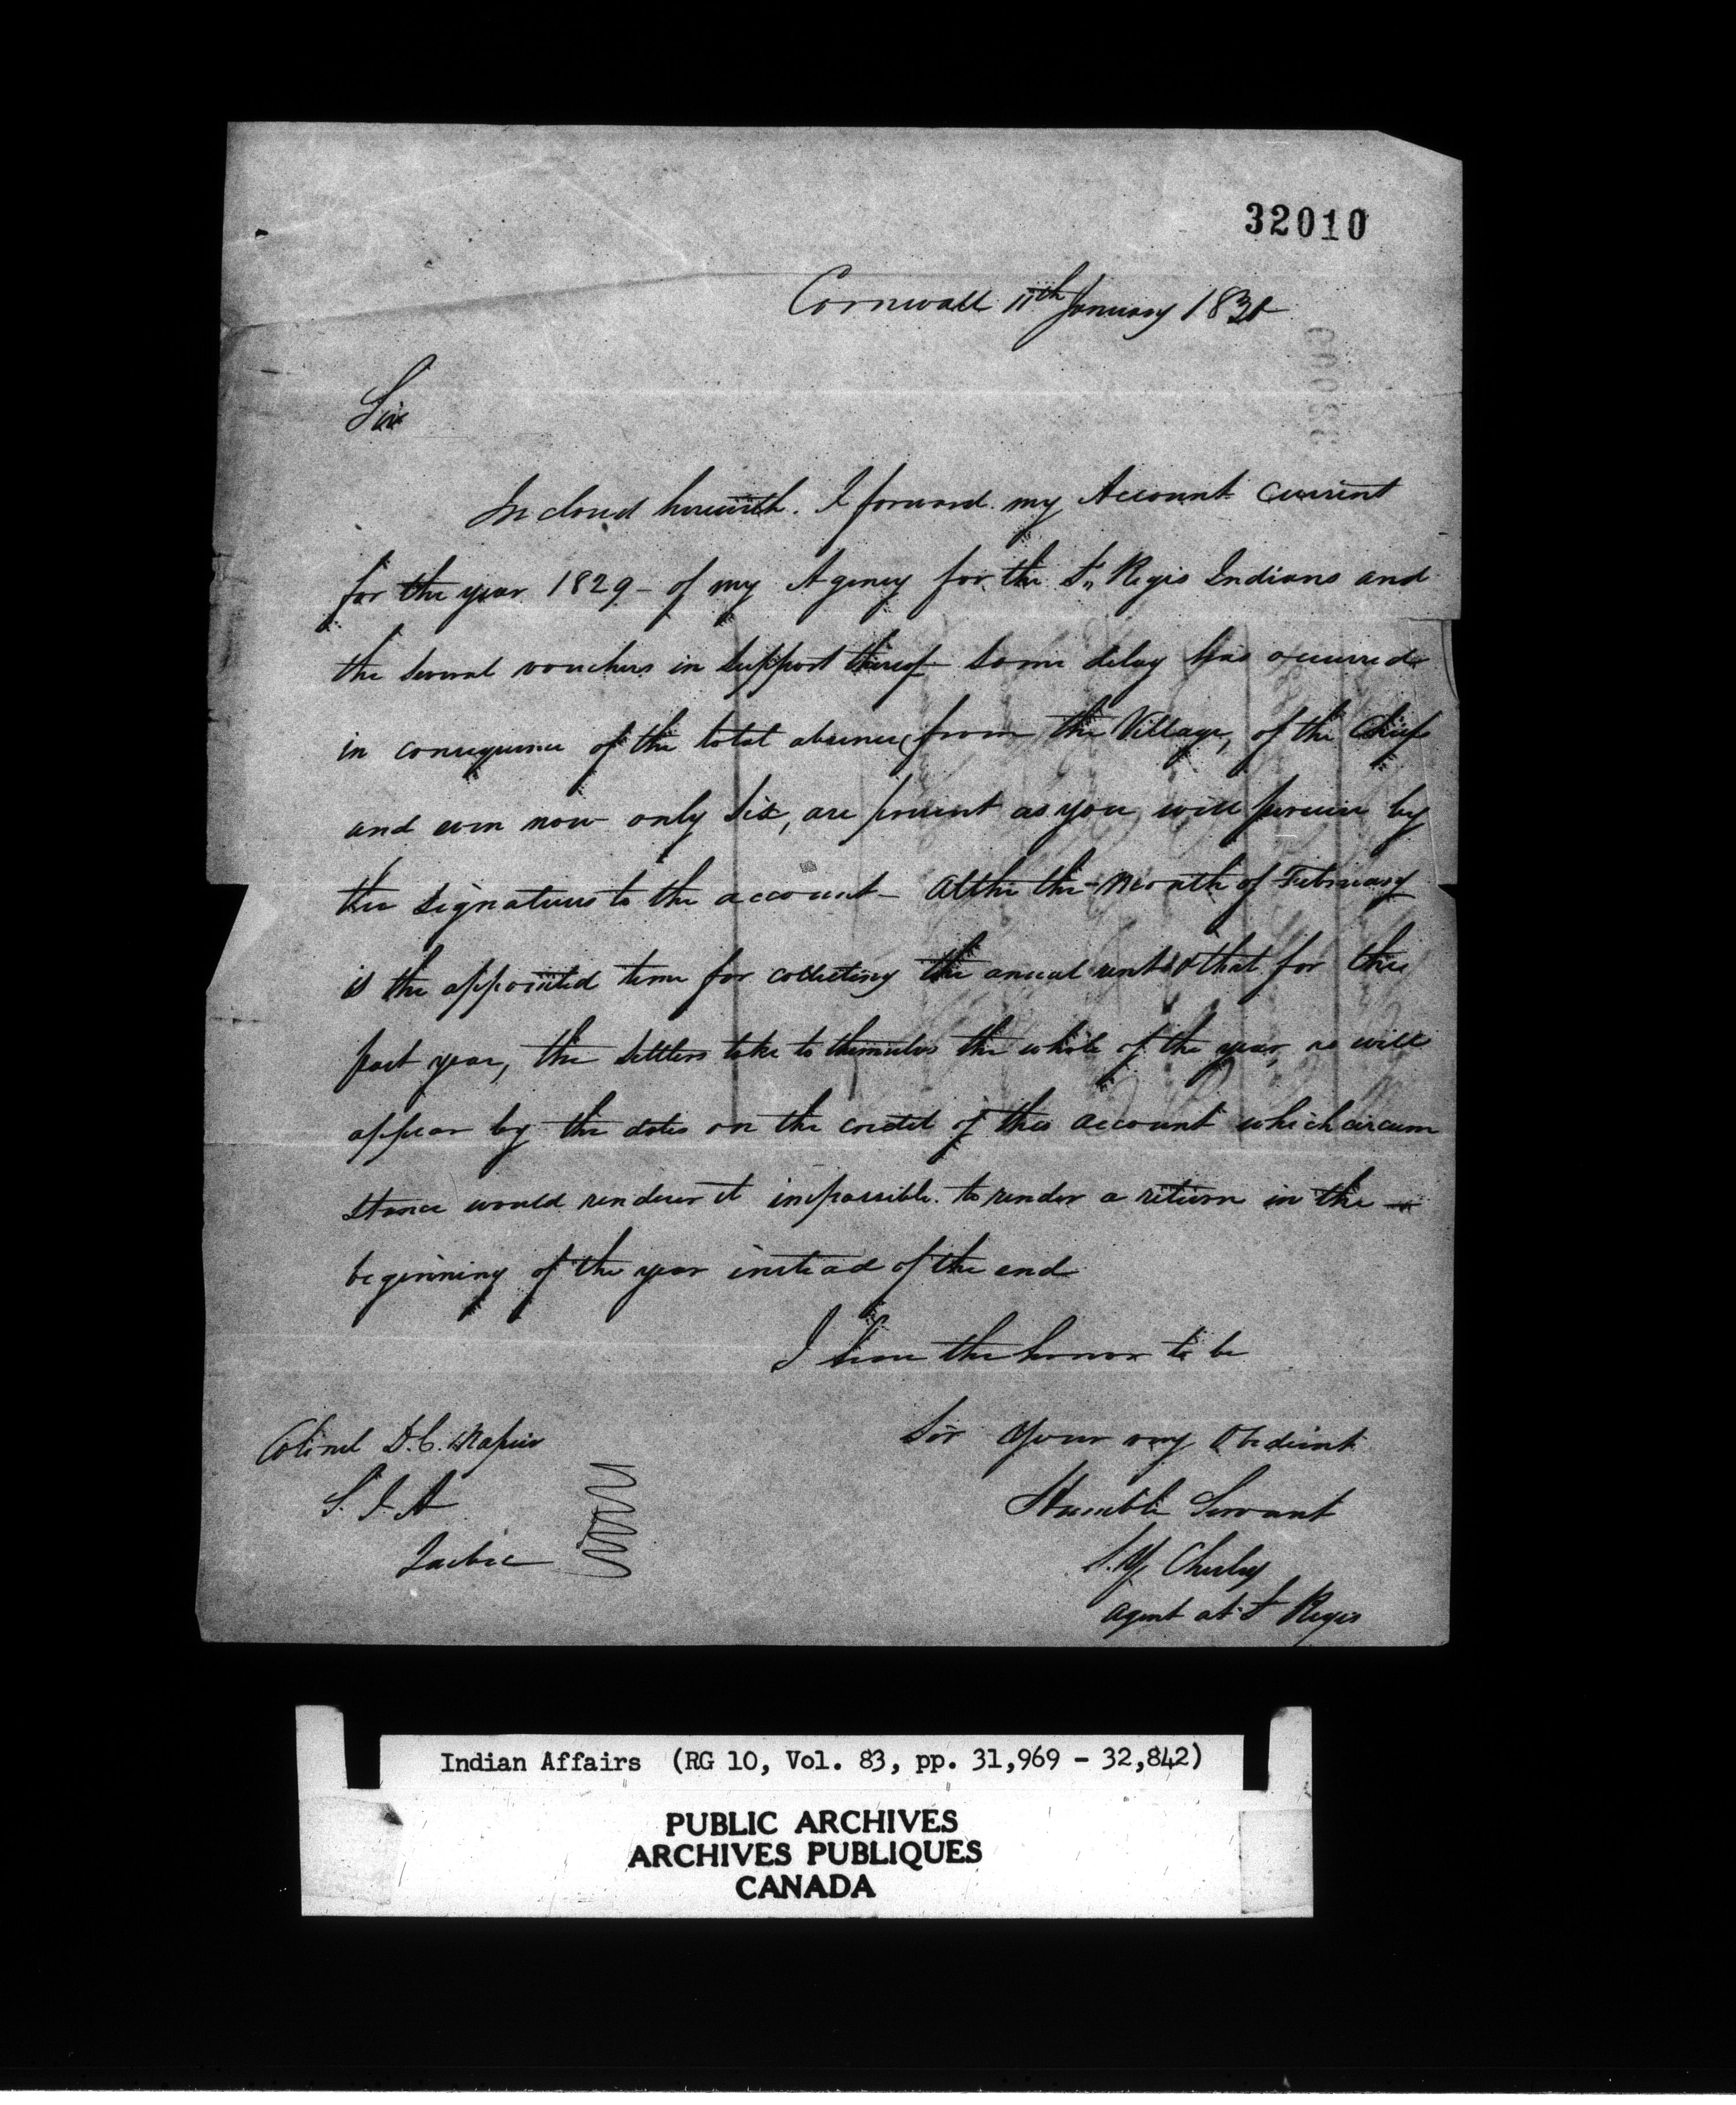 32010
Cornwall 11th January 1831
Sir
Inclosed herewith. I forward my Account Current
for the year 1829 - of my Agency for the St Regis Indians and
the several vouchers in support thereof some delay has occurred
in consequence of the total absence, from the Village, of the Chiefs
and even now only Six, are present as you will perceive by
the signatures to the account - Altho the month of February
is the appointed time for collecting the annual rents & that for the
past year, the settlers take to themselves the whole of the year, as will
appear by the dates on the credit of the account which circum
stance would render it impossible to render a return in the
beginning of the year instead of the end
I have the honor to be
Sir Your very Obedient
Humble Servant
S. Y. Chesley
Agent at St Regis
Colonel D. C. Napier
S. I. A
Quebec
Indian Affairs (RG 10, Vol. 83, pp. 31,969 - 32,842)
PUBLIC ARCHIVES
ARCHIVES PUBLIQUES
CANADA